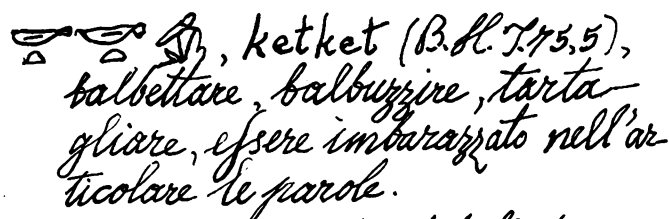 𓎡𓏏𓎡𓏏, ketket (B.H.T.75,5),
balbettare, balbuzzire, tarta-
gliare, essere imbarazzato nell'ar
ticolare le parole.